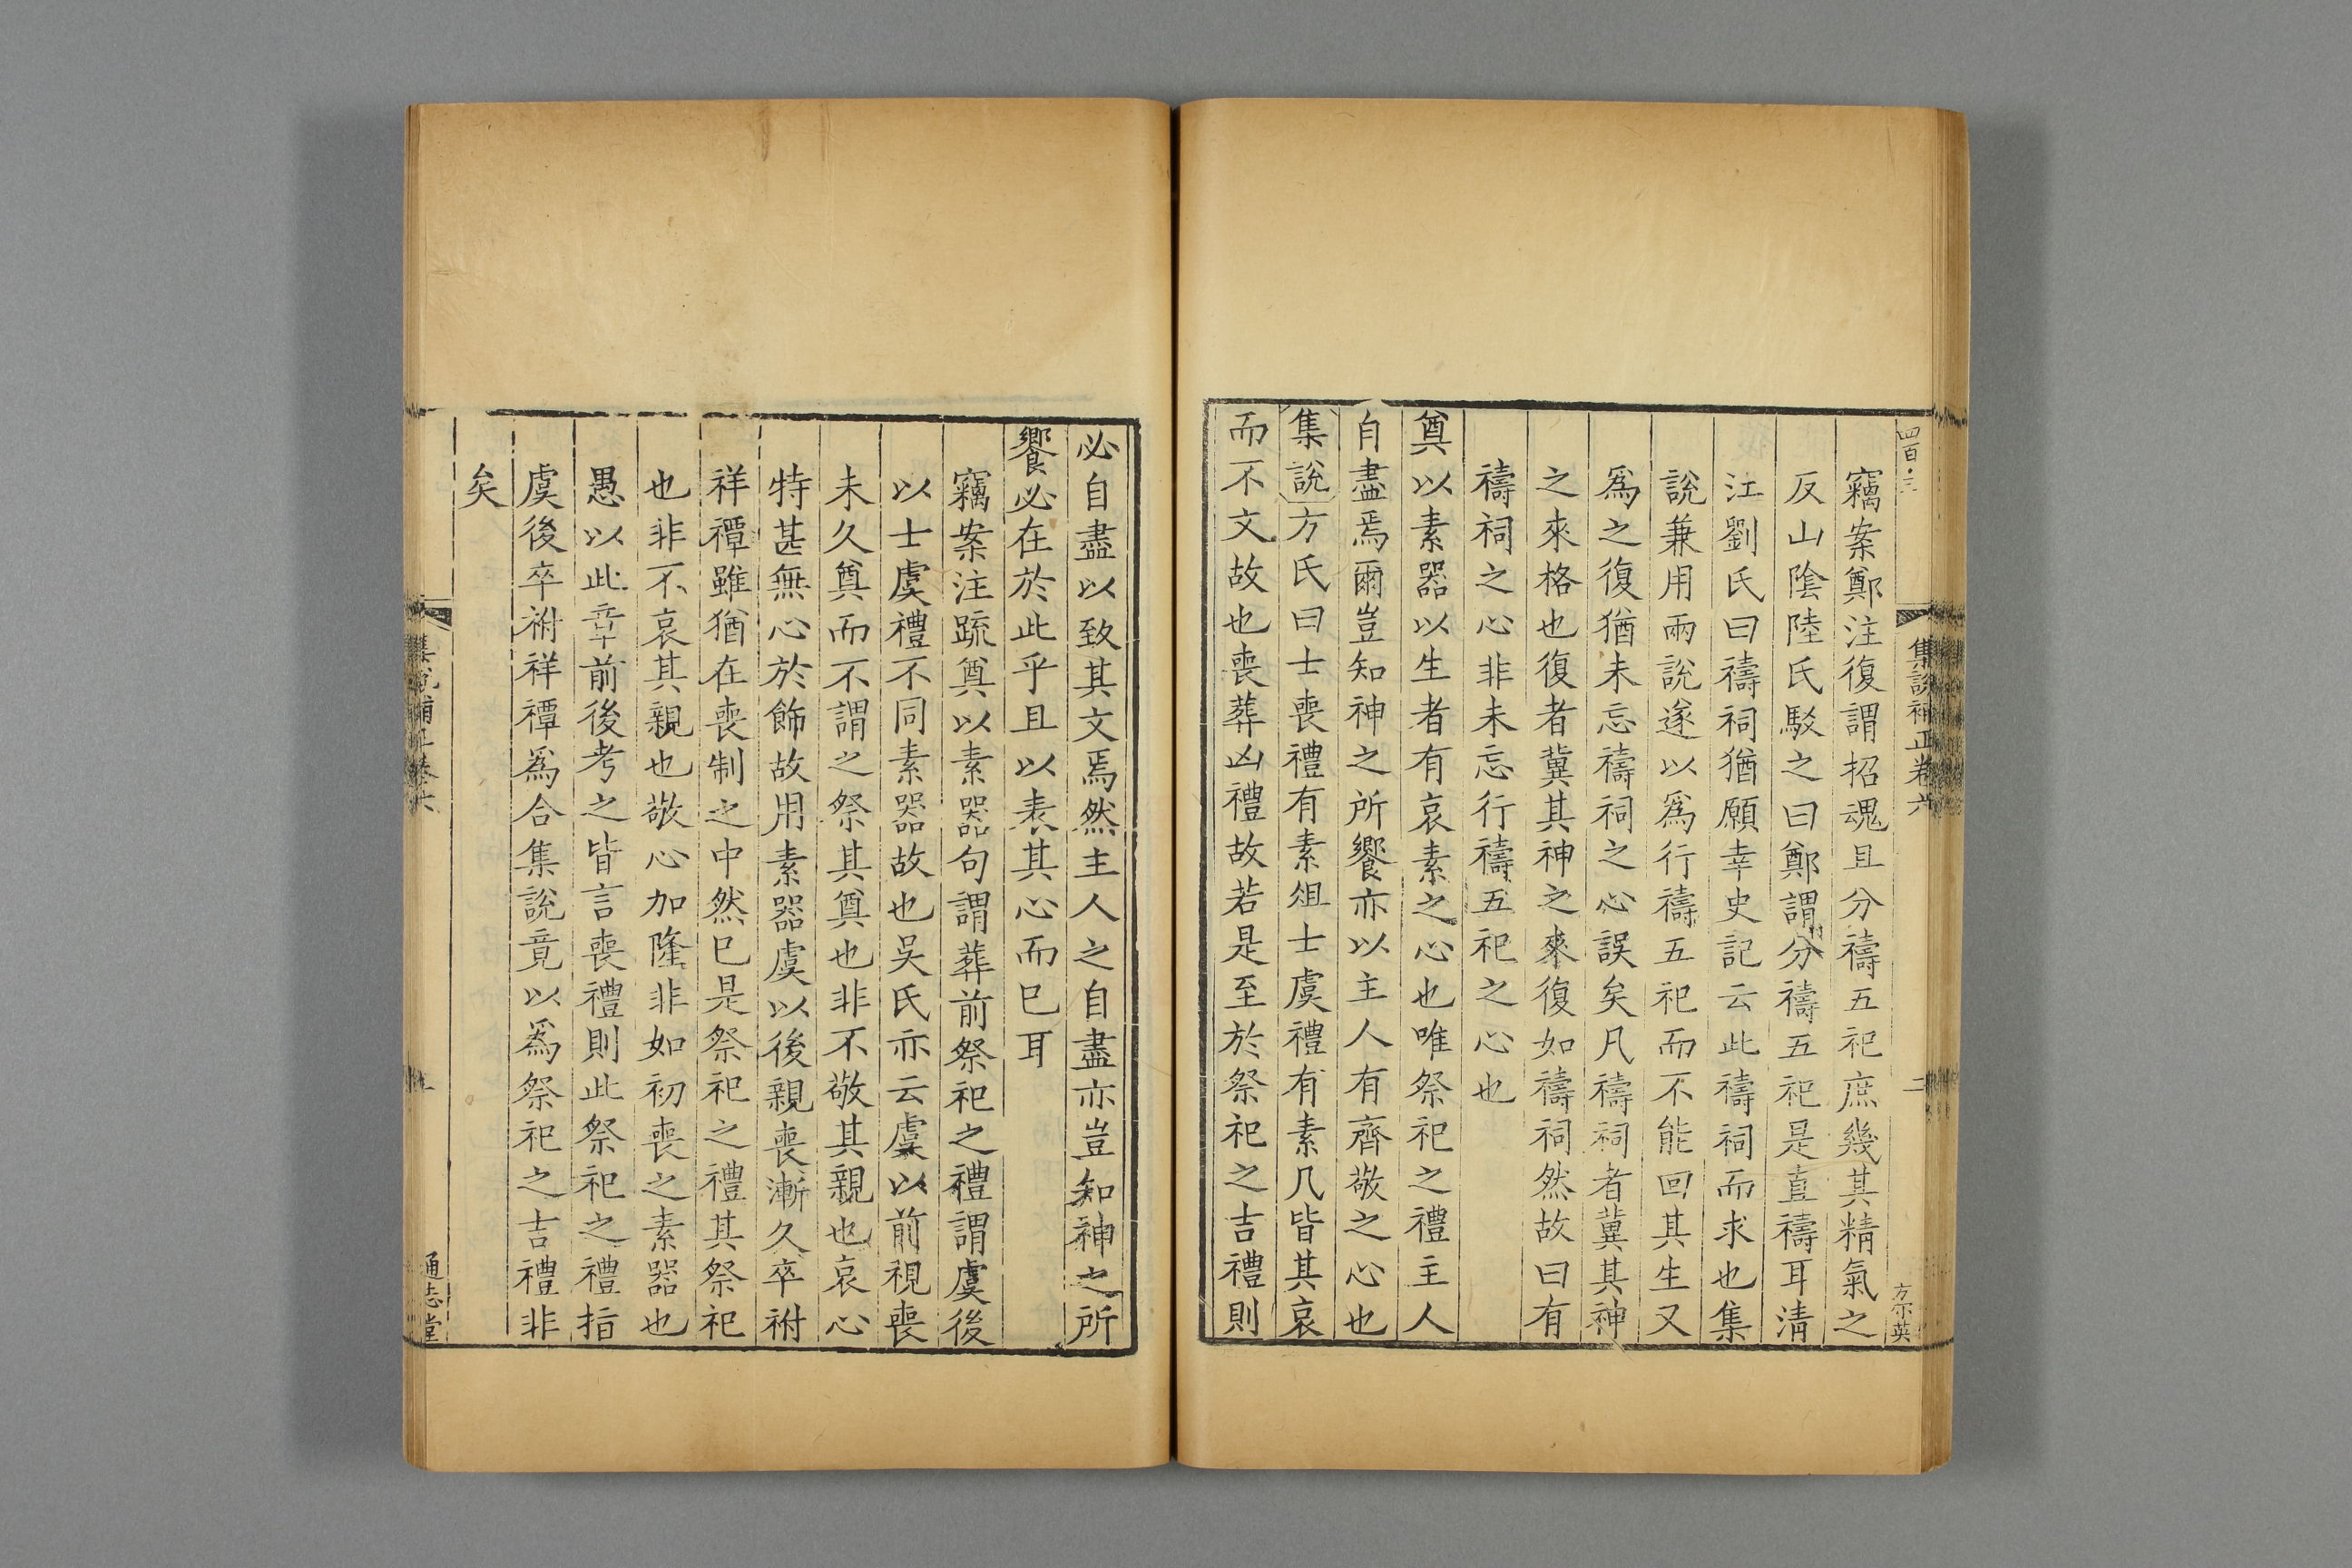 四百·三
集說補正卷六
二
方尔英
竊案鄭注復謂招魂且分禱五祀庶幾其精氣之
反山陰陸氏駁之曰鄭謂分禱五祀是直禱耳清
江劉氏曰禱祠猶願幸史記云此禱祠而求也集
說兼用兩說遂以爲行禱五祀而不能回其生又
爲之復猶未忘禱祠之心誤矣凡禱祠者冀其神
之來格也復者冀其神之來復如禱祠然故曰有
禱祠之心非未忘行禱五祀之心也
奠以素器以生者有哀素之心也唯祭祀之禮主人
自盡焉爾豈知神之所饗亦以主人有齊敬之心也
集說方氏曰士喪禮有素俎士虞禮有素几皆其哀
而不文故也喪葬凶禮故若是至於祭祀之吉禮則
必自盡以致其文焉然主人之自盡亦豈知神之所
饗必在於此乎且以表其心而已耳
竊案注疏奠以素器句謂葬前祭祀之禮謂虞後
以士虞禮不同素器故也吳氏亦云虞以前視喪
未久奠而不謂之祭其奠也非不敬其親也哀心
特甚無心於飾故用素器虞以後親喪漸久卒祔
祥禫雖猶在喪制之中然已是祭祀之禮其祭祀
也非不哀其親也敬心加隆非如初喪之素器也
愚以此章前後考之皆言喪禮則此祭祀之禮指
虞後卒祔祥禫爲合集說竟以爲祭祀之吉禮非
矣
集說補正卷六
通志堂